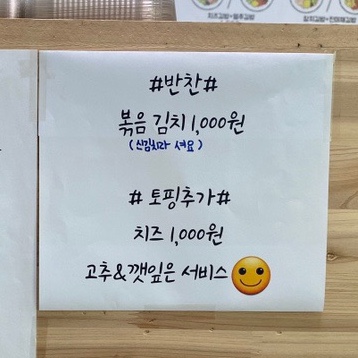 #반찬#
볶음 김치 1,000원
(신김치라 셔요)
# 토핑추가#
치즈 1,000원
고추&깻잎은 서비스